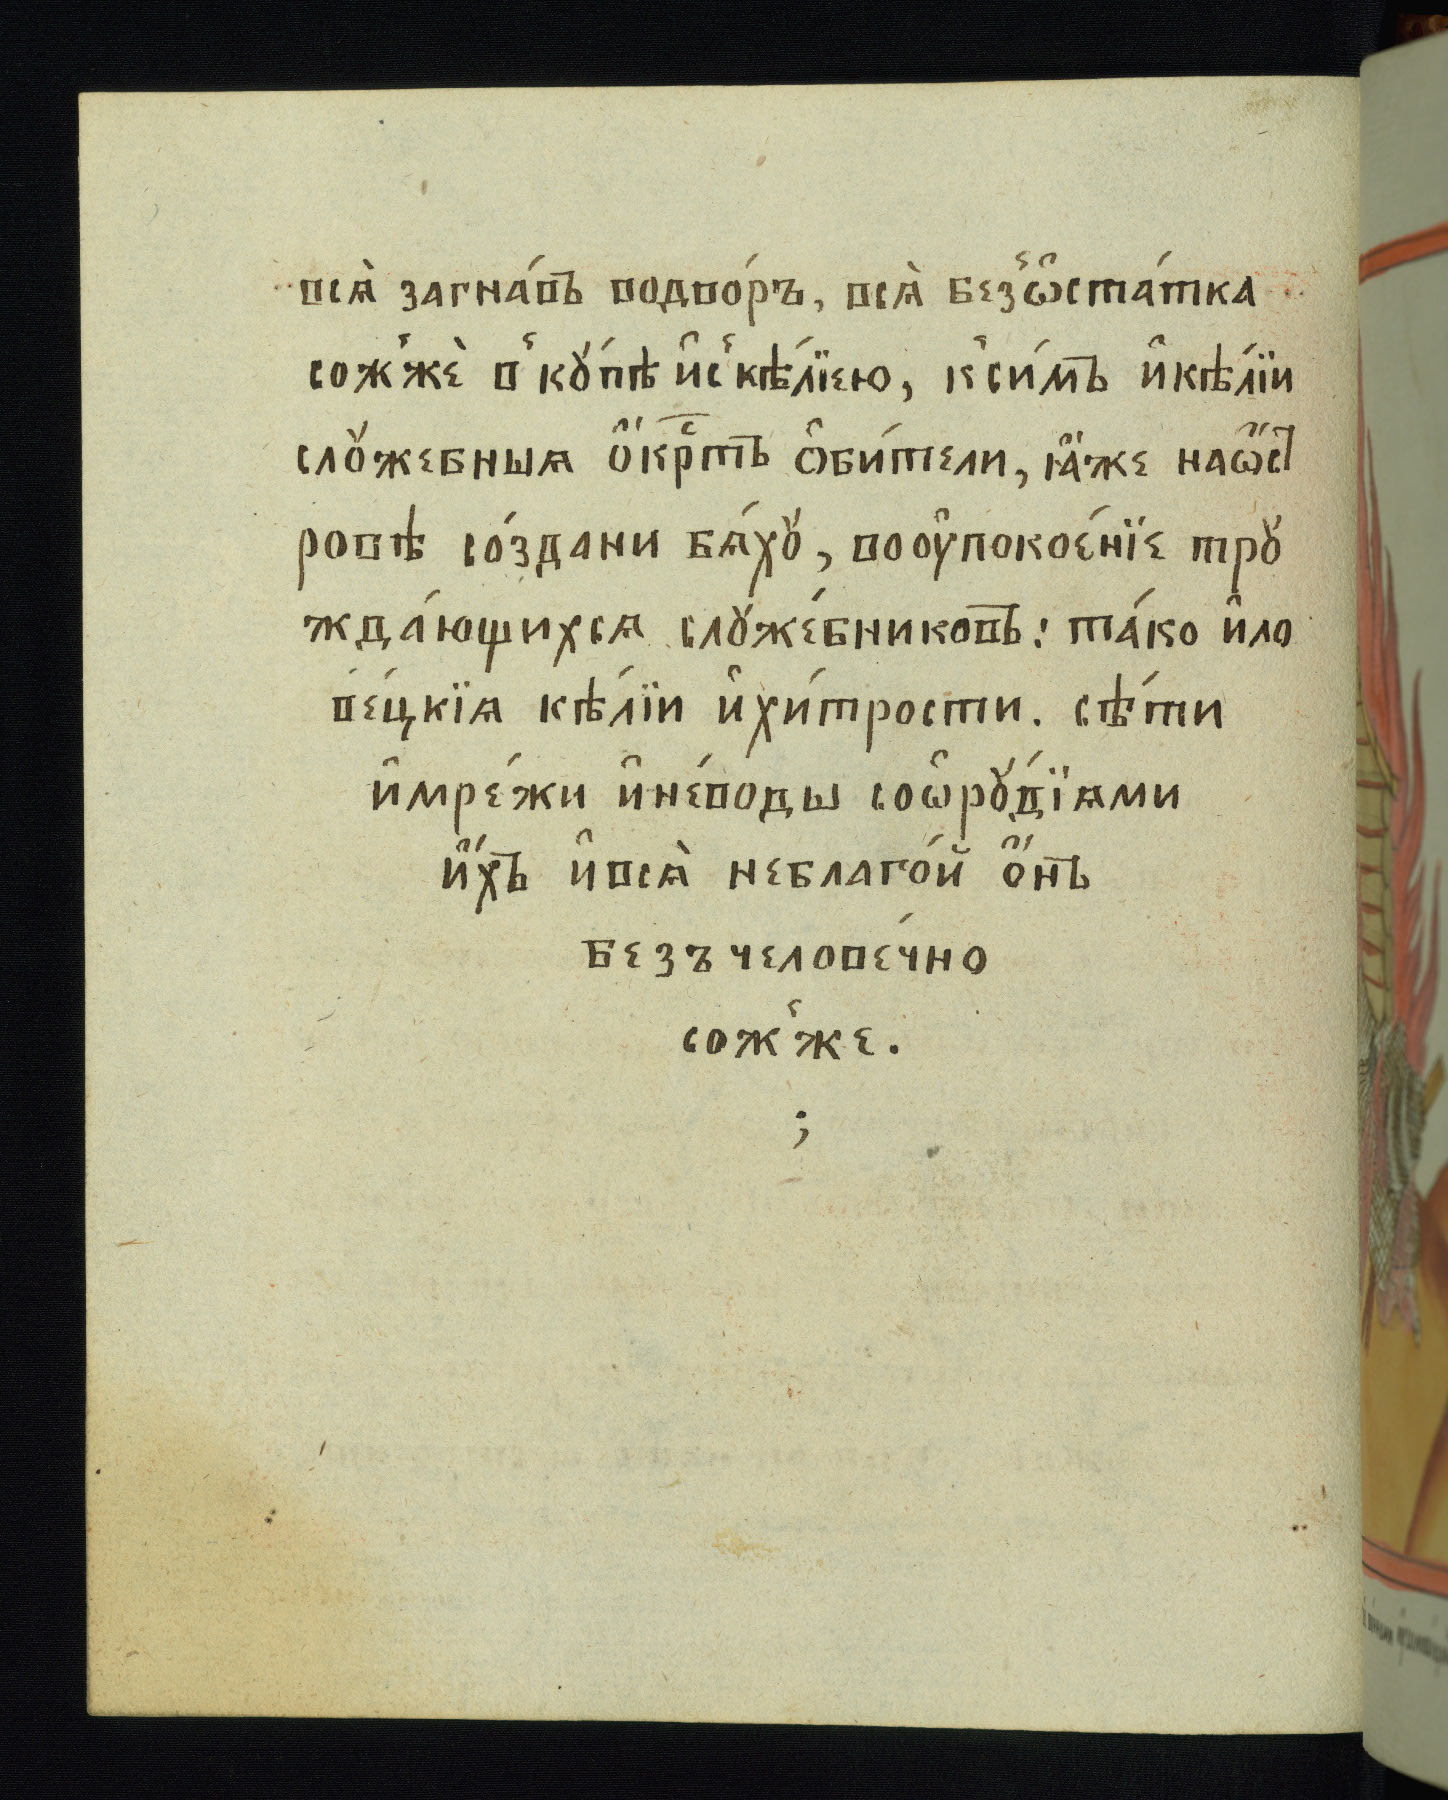 всѧ̀ загна́въ водво́ръ, всѧ̀ без̾ѡ҆ста́тка
сож̾жѐ в̾ кꙋ́пѣ и҆с̾ кѣ́лїею, к̾ си́мъ и҆ кѣ́лїи
слꙋжебныѧ ѻ҆́крⷭтъ ѻ҆би́тели, ꙗ҆́же наѡ҆́ст
ровѣ со́здани бѧ́хꙋ, воᲂу҆покое́нїе трꙋ
жда́ющихсѧ слꙋже́бниковъ: та́ко и҆ ло
ве́цкїѧ кѣ́лїи и҆ хи́трости. сѣ́ти
и҆ мре́жи и҆ не́воды соѡ҆рꙋ́дїѧми
и҆́хъ и҆ всѧ̀ неблаго́й ѻ҆́нъ
безъчелове́чно
сож̾же.
;